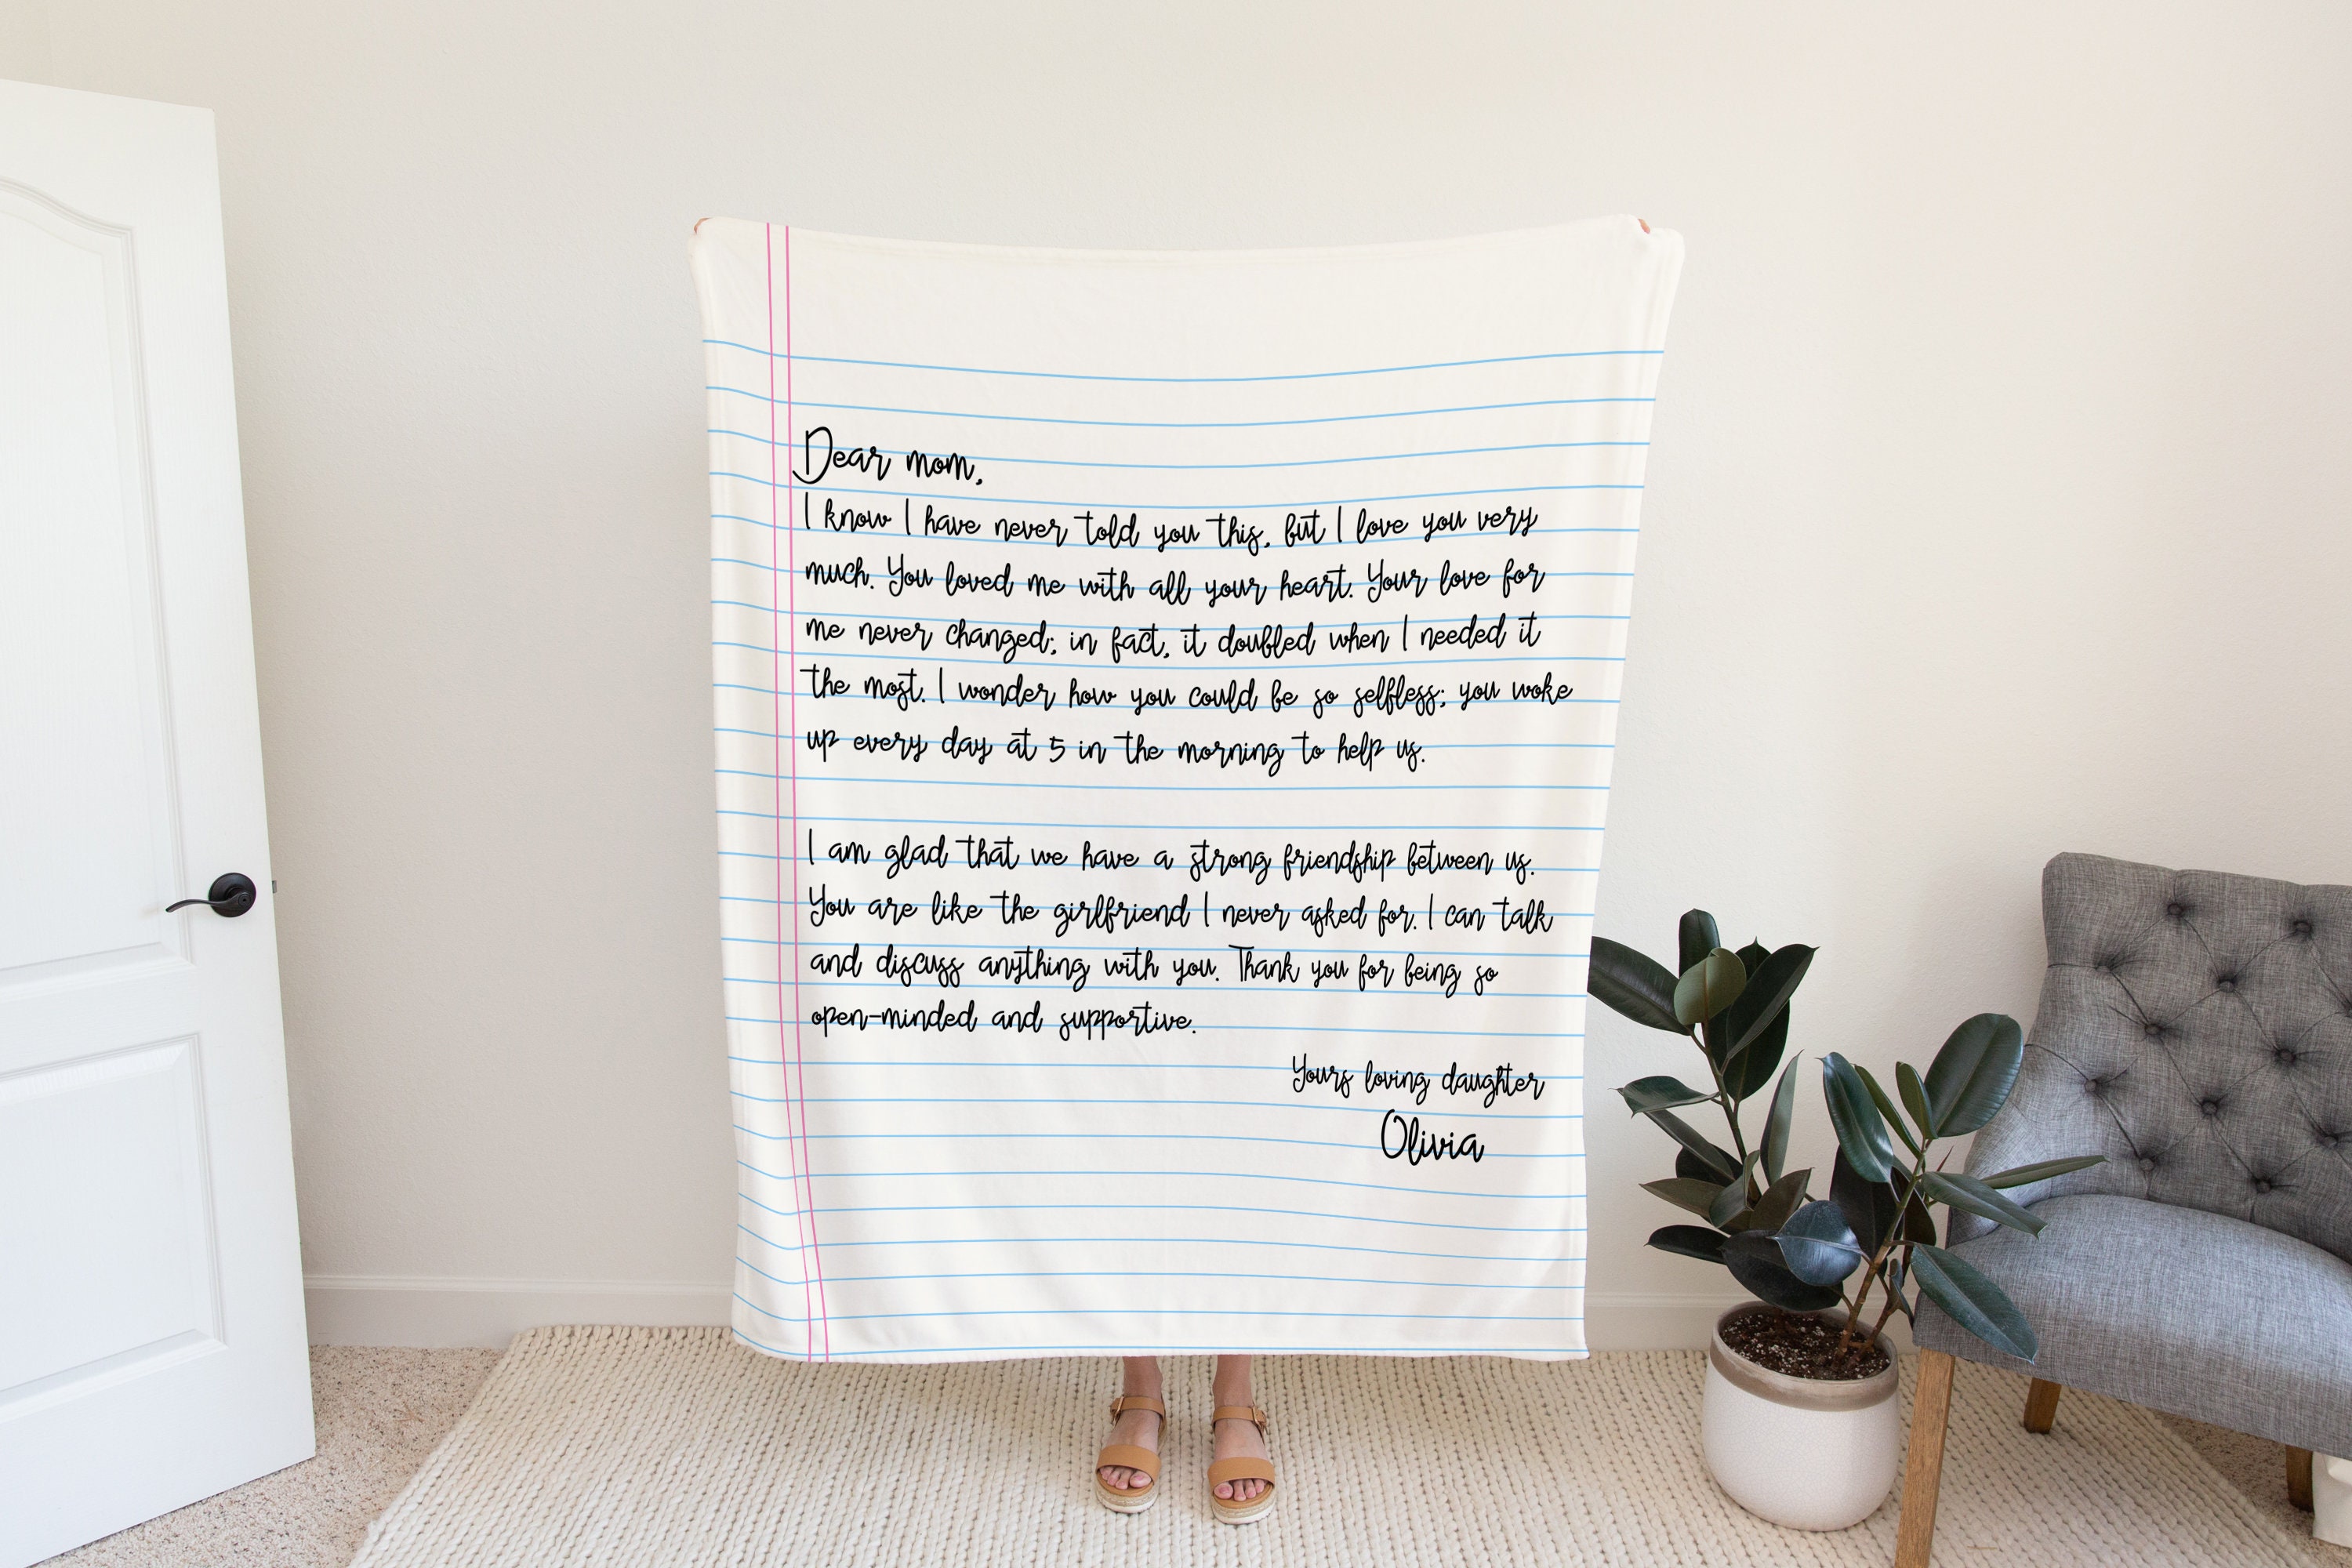 Dear mom,
I know I have never told you this, but I love you very
much. You loved me with all your heart. Your love for
me never changed; in fact, it doubled when I needed it
the most. I wonder how you could be so selfless; you woke
up every day at 5 in the morning to help us.
I am glad that we have a strong friendship between us.
You are like the girlfriend I never asked for. I can talk
and discuss anything with you. Thank you for being so
open-minded and supportive.
Yours loving daughter
Olivia